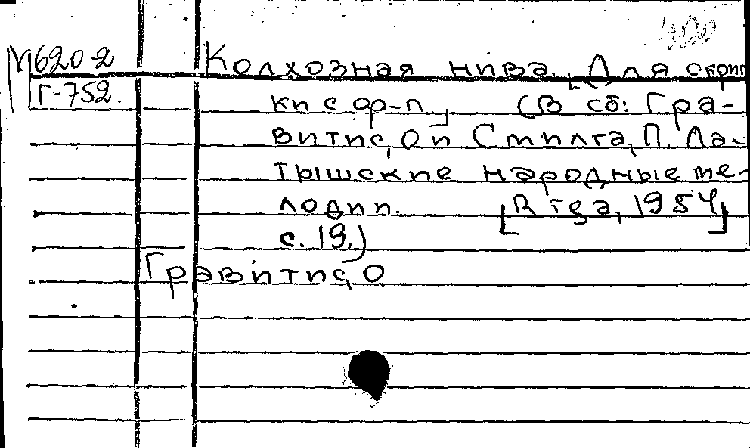 М620-2
Г-752.
Колхозная нива. [Для скрип
ки с ф-п.] (В сб: Гра-
витис, О и Смилга, П. Ла-
тышские народные ме-
лодии. [Рига, 1954]
с. 19.)
Гравитис, О